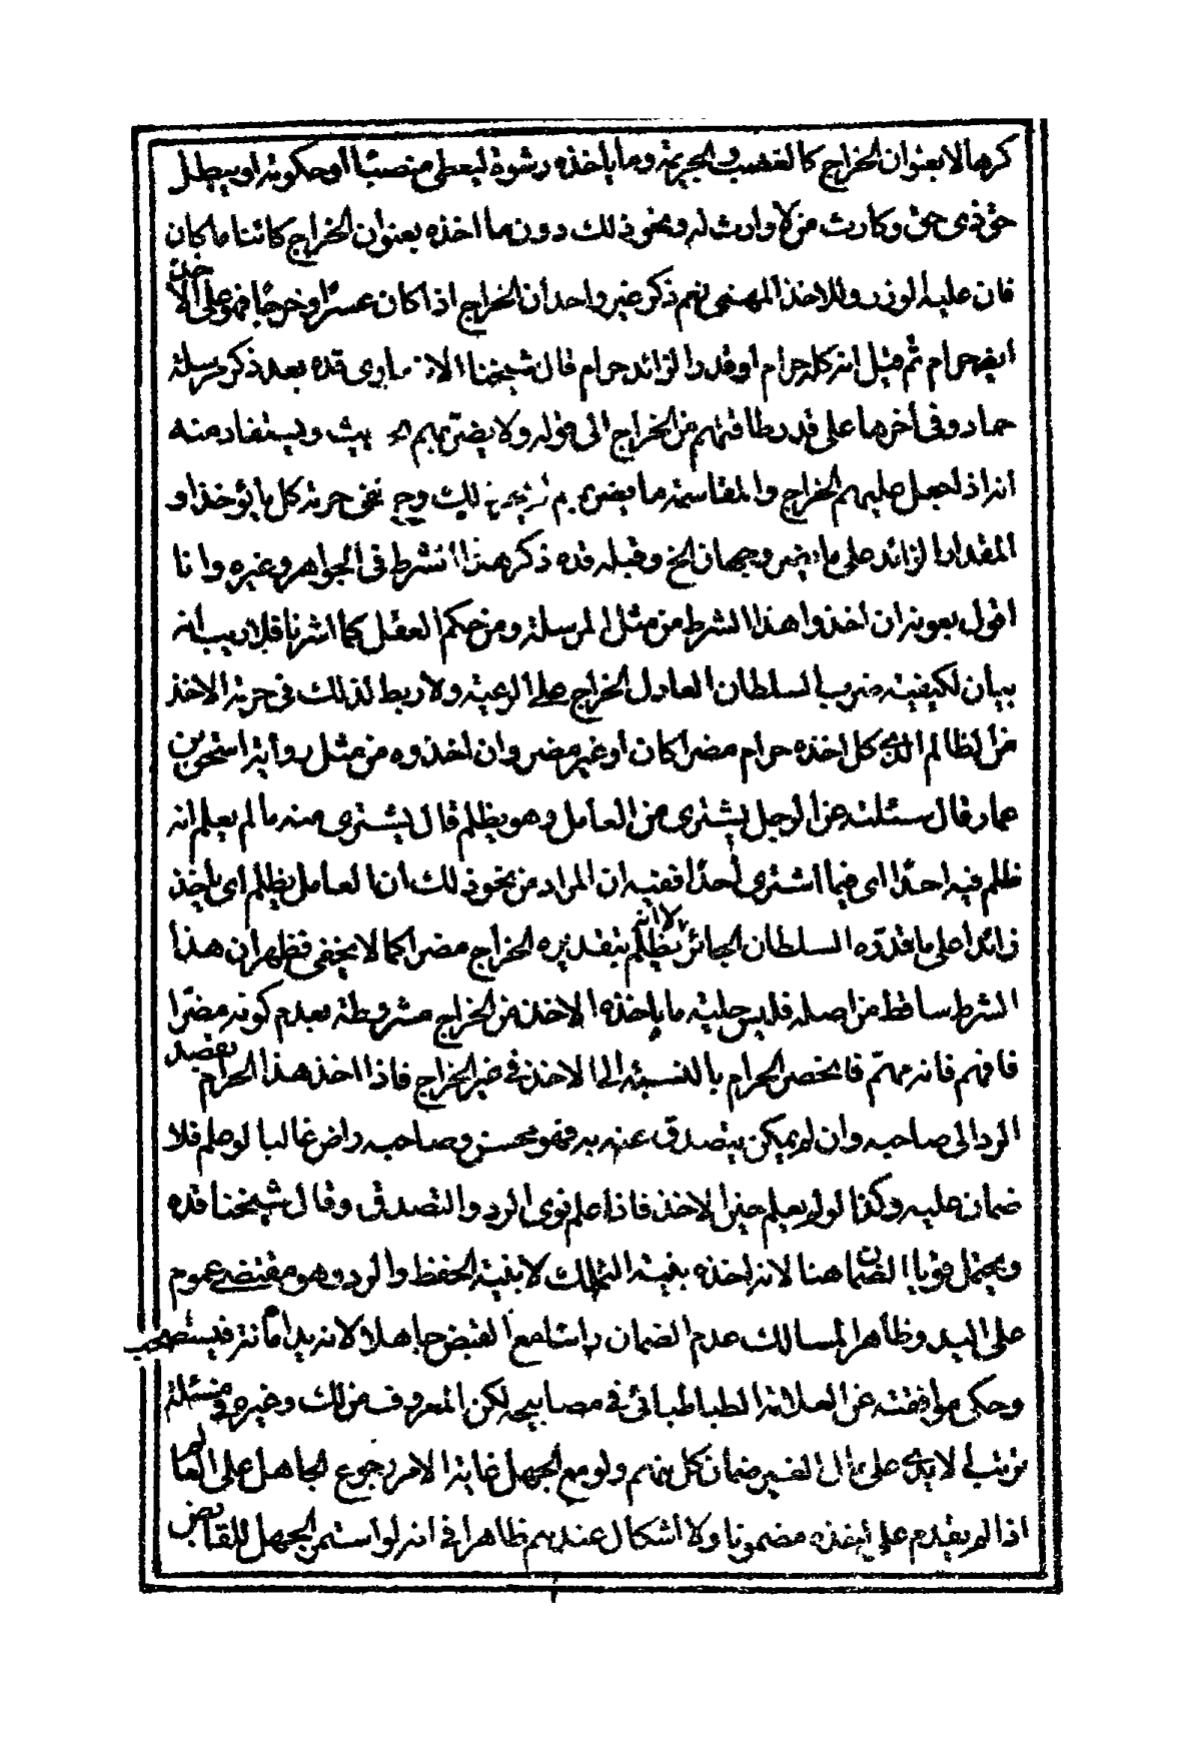 كرها لا بعنوان الخراج كالغضب والجريمة وما ياخذه رشوة ليعطى منصبا او حكومة او يبطل
حق ذى حق وكارث من لا وارث له ونحو ذلك دون ما اخذه بعنوان الخراج كائنا ما كان
فان عليه الوزر وللاخذ المهنى نعم ذكر غير واحد ان الخراج اذا كان عسرا وخرجا فهو على الاخذ
ايض حرام ثم قيل انه كله حرام او قدر الزائد حرام قال شيخنا الانصارى قده بعد ذكر مرسلة
حماد وفى اخرها على قدر طاقتهم من الخراج الى قوله ولا يضر بهم ويستفاد منه
انه اذا جعل عليهم الخراج والمقاسمة ما يضر بهم لم يجز ذلك وح نفى حرمة كل ما يؤخذ او
المقدار الزائد على ما يضر وجهان الخ وقبله قده ذكر هذا الشرط فى الجواهر وغيره وانا
اقول بعونه ان اخذوا هذا الشرط من مثل المرسلة ومن حكم العقل كما اشرنا فلا ريب انه
بيان لكيفية ضرب السلطان العادل الخراج على الرعية ولا ربط لذلك فى حرمة الاخذ
من الظالم الذى كل اخذه حرام مضرا كان او غير مضر وان اخذوه من مثل رواية اسحق بن
عمار قال سئلته عن الرجل يشترى من العامل وهو يظلم قال يشترى منه ما لم يعلم انه
ظلم فيه احدا اى فيما اشترى احدا ففيه ان المراد من نحو ذلك ان العامل يظلم اى ياخذ
زائدا على ما قدره السلطان الجائر لا انه يظلم بتقديره الخراج مضرا كما لا يخفى فظهر ان هذا
الشرط ساقط من اصله فليس حلية ما ياخذه الاخذ من الخراج مشروطة بعدم كونه مضرا
فافهم فانه مهم فانحصر الحرام بالنسبة الى الاخذ فى غير الخراج فاذا اخذ هذا الحرام بقصد
الرد الى صاحبه وان لم يمكن يتصدق عنه به فهو محسن وصاحبه راض غالبا لو علم فلا
ضمان عليه وكذا لو لم يعلم حين الاخذ فاذا علم نوى الرد والتصدق وقال شيخنا قده
ويحتمل قويا الضمان هنا لانه اخذه بنية التملك لا بنية الحفظ والرد وهو مقتضى عموم
على اليد وظاهر المسالك عدم الضمان راسا مع القبض جاهلا لانه يد امانة فيستصحب
وحكى موافقته عن العلامة الطباطبائى فى مصابيحه لكن المعروف من لك وغيره فى مسئلة
ترتب الايدى على مال الغير ضمان كل منهم ولو مع الجهل غاية الامر رجوع الجاهل على العالم
اذا لم يقدم على اخذه مضمونا ولا اشكال عندهم ظاهرا فى انه لو استمر الجهل للقابض